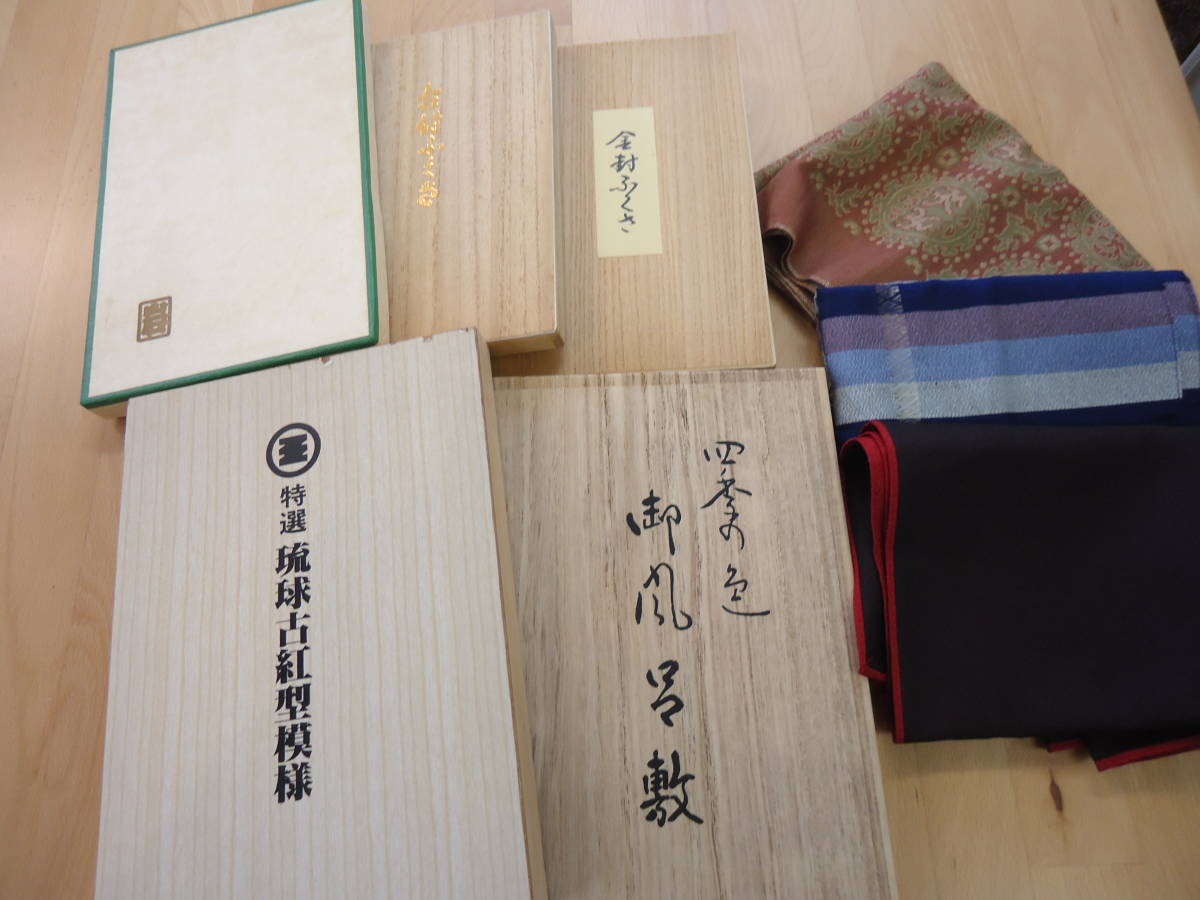 金封ふくさ
特選
琉球古紅型模様
四季の色
御風呂敷